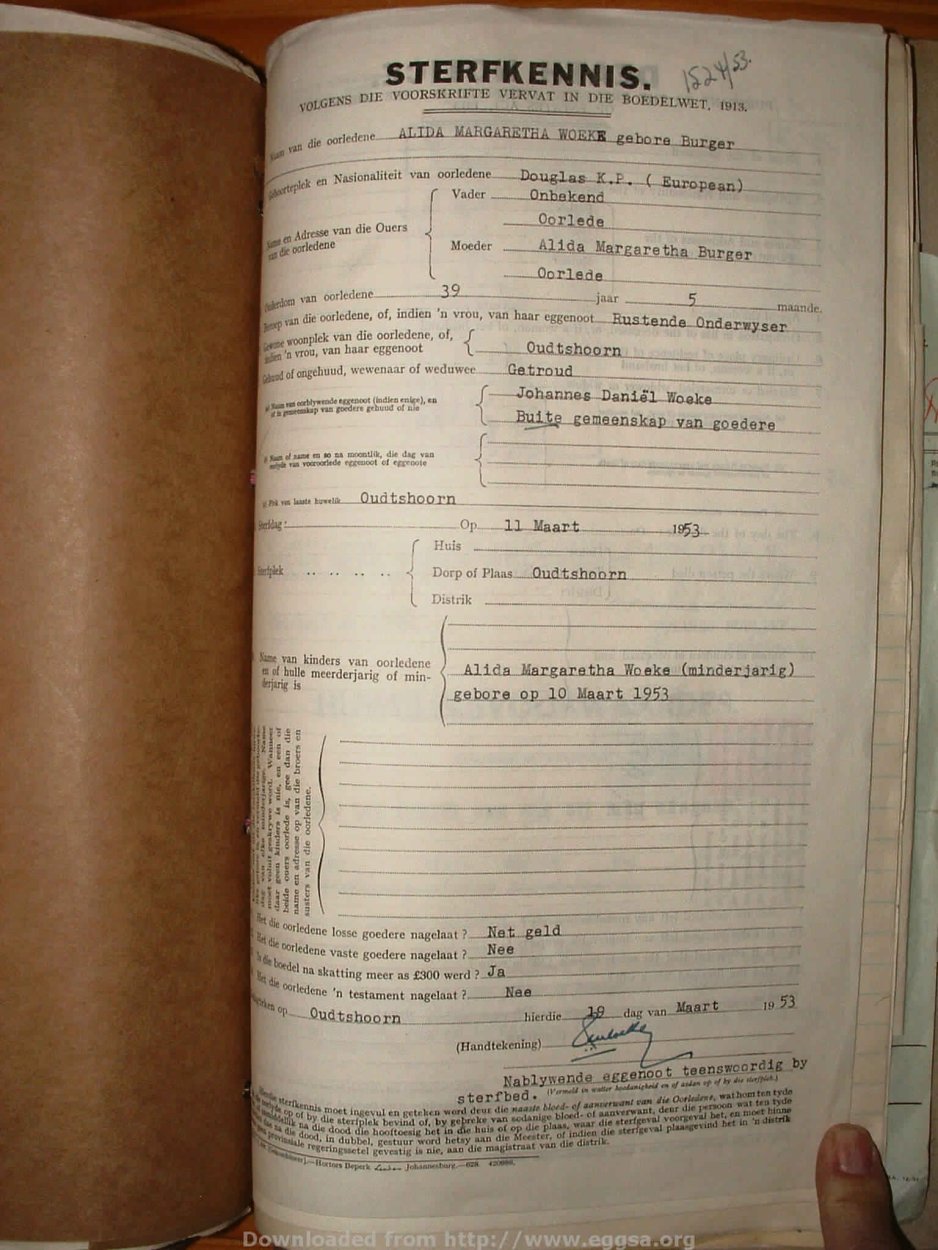 STERFKENNIS.
1524/53.
VOLGENS DIE VOORSKRIFTE VERVAT IN DIE BOEDELWET, 1913.
Naam van die oorledene ALIDA MARGARETHA WOEKE gebore Burger
Geboorteplek en Nasionaliteit van oorledene Douglas K.P. ( European)
Vader Onbekend
Oorlede
Name en Adresse van die Ouers
van die oorledene
Moeder Alida Margaretha Burger
Oorlede
Ouderdom van oorledene 39 jaar 5 maande.
Beroep van die oorledene, of, indien 'n vrou, van haar eggenoot Rustende Onderwyser
Gewone woonplek van die oorledene, of,
indien 'n vrou, van haar eggenoot
Oudtshoorn
Gehuud of ongehuud, wewenaar of weduwee Getroud
(a) Naam van oorblywende eggenoot (indien enige), en
of in gemeenskap van goedere gehuud of nie
Johannes Daniël Woeke
Buite gemeenskap van goedere
(b) Naam of name en so na moontlik, die dag van
oorlyde van vooroorlede eggenoot of eggenote
(c) Plek van laaste huwelik Oudtshoorn
Sterfdag: Op 11 Maart 1953
Huis
Sterfplek Dorp of Plaas Oudtshoorn
Distrik
Name van kinders van oorledene
en of hulle meerderjarig of min-
derjarig is
Alida Margaretha Woeke (minderjarig)
gebore op 10 Maart 1953
moet voluit geskrywe word. Wanneer
daar geen kinders is nie, en een of
beide ouers oorlede is, gee dan die
name en adresse op van die broers en
susters van die oorledene.
Het die oorledene losse goedere nagelaat? Net geld
Het die oorledene vaste goedere nagelaat? Nee
Is die boedel na skatting meer as £300 werd? Ja
Het die oorledene 'n testament nagelaat? Nee
Geteken op Oudtshoorn hierdie 19 dag van Maart 1953
(Handtekening)
Nablywende eggenoot teenswoordig by
sterfbed. (Vermeld in watter hoedanigheid en of aldan op of by die sterfplek.)
Hierdie sterfkennis moet ingevul en geteken word deur die naaste bloed- of aanverwant van die Oorledene, wat hom ten tyde
op of by die sterfplek bevind of, by gebreke van sodanige bloed- of aanverwant, deur die persoon wat ten tyde
na die dood die hooftoesig het in die huis of op die plaas, waar die sterfgeval voorgeval het, en moet binne
die dood, in dubbel, gestuur word hetsy aan die Meester, of indien die sterfgeval plaasgevind het in 'n distrik
provinsiale regeringssetel gevestig is nie, aan die magistraat van die distrik.
Hortors Beperk Johannesburg.—628
Downloaded from http://www.eggsa.org